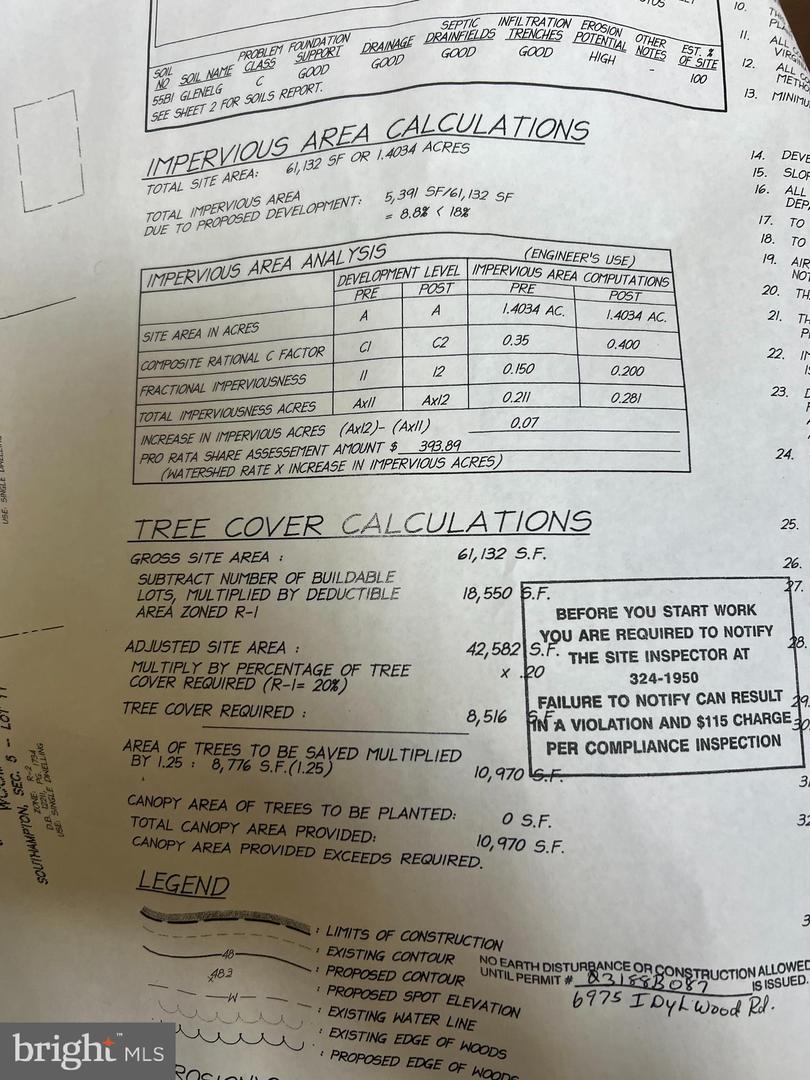 SOIL NO SOIL NAME PROBLEM CLASS FOUNDATION SUPPORT DRAINAGE SEPTIC DRAINFIELDS INFILTRATION TRENCHES EROSION POTENTIAL OTHER NOTES EST. % OF SITE
55B1 GLENELG C GOOD GOOD GOOD GOOD HIGH - 100
SEE SHEET 2 FOR SOILS REPORT.
IMPERVIOUS AREA CALCULATIONS
TOTAL SITE AREA: 61,132 SF OR 1.4034 ACRES
TOTAL IMPERVIOUS AREA
DUE TO PROPOSED DEVELOPMENT: 5,391 SF/61,132 SF
= 8.8% < 18%
IMPERVIOUS AREA ANALYSIS (ENGINEER'S USE)
DEVELOPMENT LEVEL IMPERVIOUS AREA COMPUTATIONS
PRE POST PRE POST
SITE AREA IN ACRES A A 1.4034 AC. 1.4034 AC.
COMPOSITE RATIONAL C FACTOR C1 C2 0.35 0.400
FRACTIONAL IMPERVIOUSNESS I1 I2 0.150 0.200
TOTAL IMPERVIOUSNESS ACRES AxI1 AxI2 0.211 0.281
INCREASE IN IMPERVIOUS ACRES (AxI2)- (AxI1) 0.07
PRO RATA SHARE ASSESSEMENT AMOUNT $ 393.89
(WATERSHED RATE X INCREASE IN IMPERVIOUS ACRES)
TREE COVER CALCULATIONS
GROSS SITE AREA : 61,132 S.F.
SUBTRACT NUMBER OF BUILDABLE
LOTS, MULTIPLIED BY DEDUCTIBLE 18,550 S.F.
AREA ZONED R-1
ADJUSTED SITE AREA : 42,582 S.F.
MULTIPLY BY PERCENTAGE OF TREE x .20
COVER REQUIRED (R-1= 20%)
TREE COVER REQUIRED : 8,516 S.F.
AREA OF TREES TO BE SAVED MULTIPLIED
BY 1.25 : 8,776 S.F.(1.25) 10,970 S.F.
CANOPY AREA OF TREES TO BE PLANTED: 0 S.F.
TOTAL CANOPY AREA PROVIDED: 10,970 S.F.
CANOPY AREA PROVIDED EXCEEDS REQUIRED.
BEFORE YOU START WORK
YOU ARE REQUIRED TO NOTIFY
THE SITE INSPECTOR AT
324-1950
FAILURE TO NOTIFY CAN RESULT
IN A VIOLATION AND $115 CHARGE
PER COMPLIANCE INSPECTION
LEGEND
: LIMITS OF CONSTRUCTION
: EXISTING CONTOUR
48 : PROPOSED CONTOUR
48.3 : PROPOSED SPOT ELEVATION
W : EXISTING WATER LINE
: EXISTING EDGE OF WOODS
: PROPOSED EDGE OF WOODS
NO EARTH DISTURBANCE OR CONSTRUCTION ALLOWED
UNTIL PERMIT # Q3188B087 IS ISSUED.
6975 IDylwood Rd.
10.
11. ALL
VIRGIN
12. ALL
METHO
13. MINIMU
14. DEVE
15. SLOP
16. ALL
DEP
17. TO
18. TO
19. AIR
NOT
20. TH
21. TH
P
22. IM
IS
23.
24.
25.
26.
27.
28.
29.
30.
31
32
3
SOUTHAMPTON, SEC. 5 - LOT
ZONE: R-2
USE: SINGLE DWELLING
USE: SINGLE DWELLING
bright MLS